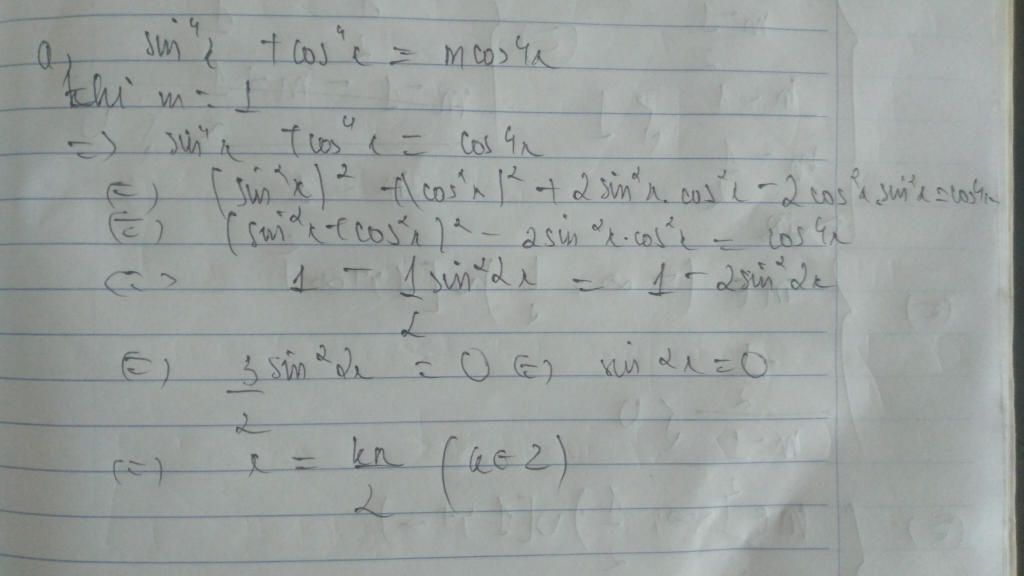 a, sin⁴x + cos⁴x = m cos4x
khi m = 1
=> sin⁴x + cos⁴x = cos4x
(=) (sin²x)² + (cos²x)² + 2sin²x.cos²x - 2cos²x.sin²x = cos4x
(=) (sin²x + cos²x)² - 2sin²x.cos²x = cos4x
<=> 1 - 1/2 sin²2x = 1 - 2sin²2x
(=) 3/2 sin²2x = 0 (=) sin2x = 0
(=) x = kπ/2 (k∈Z)